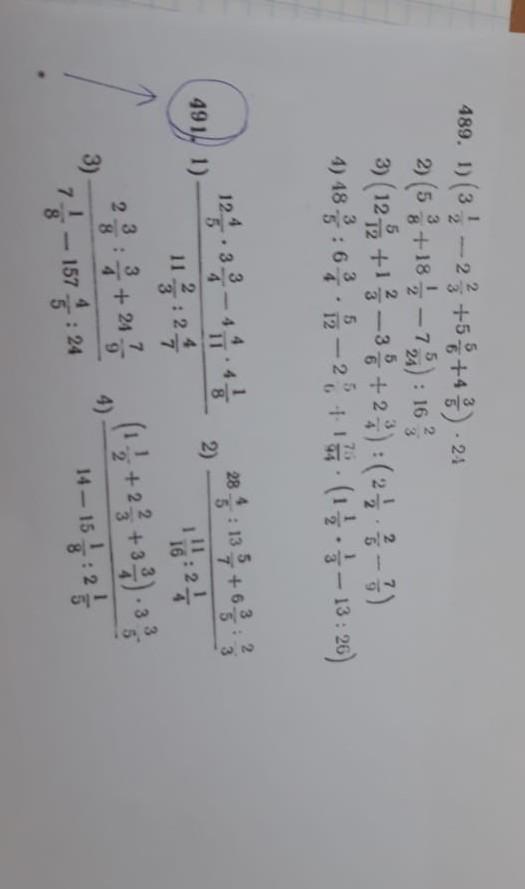 489. 1) (3 1/2 − 2 2/3 + 5 5/6 + 4 3/5) · 24
2) (5 3/8 + 18 1/2 − 7 5/24) : 16 2/3
3) (12 5/12 + 1 2/3 − 3 5/6 + 2 3/4) : (2 1/2 · 2/5 − 7/9)
4) 48 3/5 : 6 3/4 · 5/12 − 2 5/6 + 1 · (1 1/2 · 1/3 − 13 : 26)
491. 1) (12 4/5 · 3 3/4 − 4 4/11 · 4 1/8) / (11 2/3 : 2 4/7)
2) (28 4/5 : 13 5/7 + 6 3/5 : 2/3) / (1 11/16 : 2 1/4)
3) (2 3/8 : 3/4 + 24 7/9) / (7 1/8 − 157 4/5 : 24)
4) ((1 1/2 + 2 2/3 + 3 3/4) · 3 3/5) / (14 − 15 1/8 : 2 1/5)